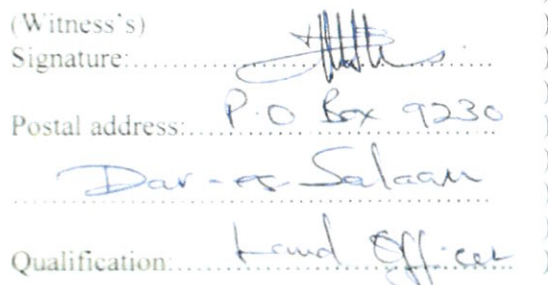 (Witness's) )
Signature:.................... )
)
Postal address: P.O Box 9230 )
)
Dar-es-Salaam )
)
Qualification: Land Officer )